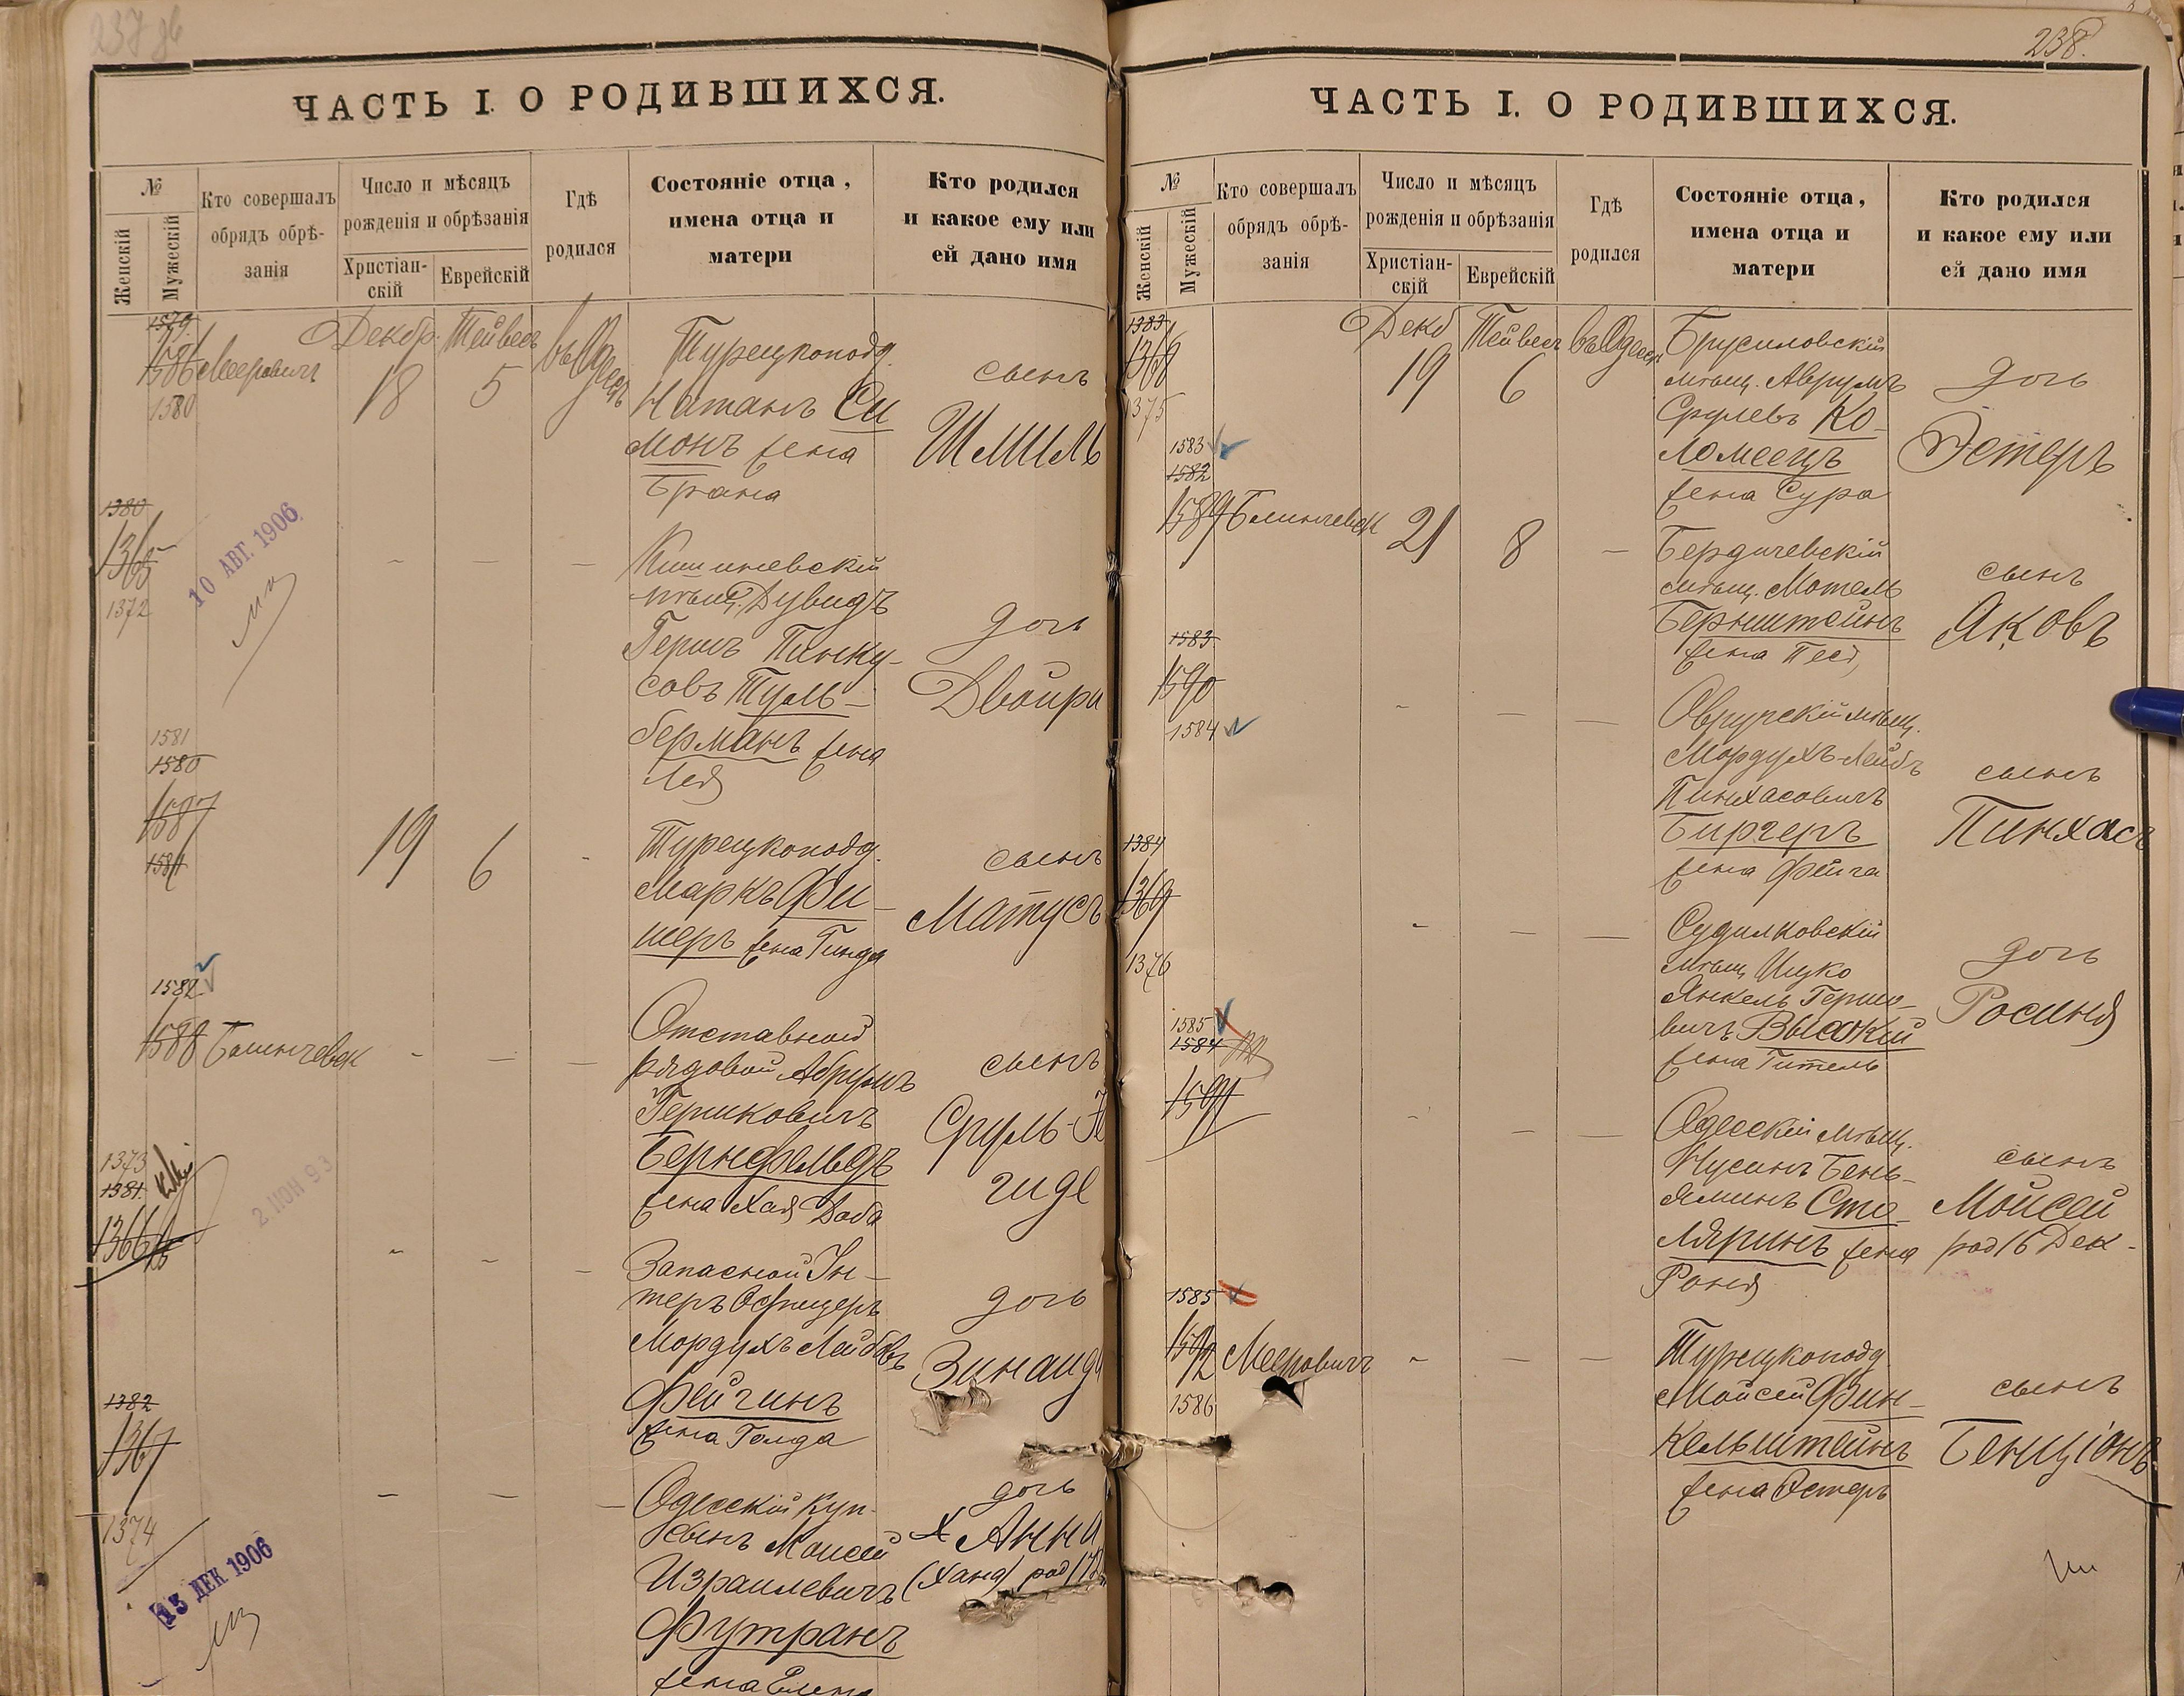 237 об
ЧАСТЬ I. О РОДИВШИХСЯ.
№
Женскій
Мужескій
Кто совершалъ
обрядъ обрѣ-
занія
Число и мѣсяцъ
рожденія и обрѣзанія
Христіан-
скій
Еврейскій
Гдѣ
родился
Состояніе отца,
имена отца и
матери
Кто родился
и какое ему или
ей дано имя
1579
1586
1580
Мееровичъ
Декбр.
18
Тейвесъ
5
въ Одессѣ
Турецкопод.
Натанъ Си
монъ жена
Брана
сынъ
Шмиль
1380
1365
1372
10 АВГ. 1906
Кишиневскій
мѣщ. Дувидъ
Гершъ Пинку-
совъ Туль-
берманъ жена
Лея
дочь
Двойра
1581
1580
1587
1581
19
6
Турецкопод.
Маркъ Фи-
шеръ жена Гинда
сынъ
Матусъ
1582
1588
Балинчевск
Отставной
рядовой Абрумъ
Гершковичъ
Бернфельдъ
жена Хая Доба
сынъ
Сруль-
гиде
1373
1381
1366
2 ИЮН 93
Запасной Ун-
теръ Офицеръ
Мордухъ Лейбовъ
Фейгинъ
жена Голда
дочь
Зинаида
1382
1367
1374
13 ДЕК 1906
Одесскій Куп.
сынъ Моисей
Израилевичъ
Футранъ
жена Елена
дочь
Х Анна
(Хана) род 17
238.
ЧАСТЬ I. О РОДИВШИХСЯ.
№
Женскій
Мужескій
Кто совершалъ
обрядъ обрѣ-
занія
Число и мѣсяцъ
рожденія и обрѣзанія
Христіан-
скій
Еврейскій
Гдѣ
родился
Состояніе отца,
имена отца и
матери
Кто родился
и какое ему или
ей дано имя
1383
1368
1375
Декб
19
Тейвесъ
6
въ Одессѣ
Брусиловскій
мѣщ. Аврумъ
Срулевъ Ко-
ломеецъ
жена Сура
дочь
Эстеръ
1583
1582
1589
Балинчевск
21
8
Бердичевскій
мѣщ. Мотель
Бернштейнъ
жена Песя
сынъ
Яковъ
1583
1590
1584
Овручскій мѣщ.
Мордухъ-Лейбъ
Пинхасовичъ
Биргеръ
жена Фейга
сынъ
Пинхасъ
1384
1369
1376
Судилковскій
мѣщ Ицко
Янкель Гершо-
вичъ Высокій
жена Гитель
дочь
Росиня
1585
1584
1591
Одесскій мѣщ.
Нусинъ Бень-
яминъ Сто-
ляринъ жена
Роня
сынъ
Мойсей
род 16 Дек-
1585
1592
1586
Мееровичъ
Турецкопод
Мойсей Фин-
кельштейнъ
жена Эстеръ
сынъ
Бенціонъ